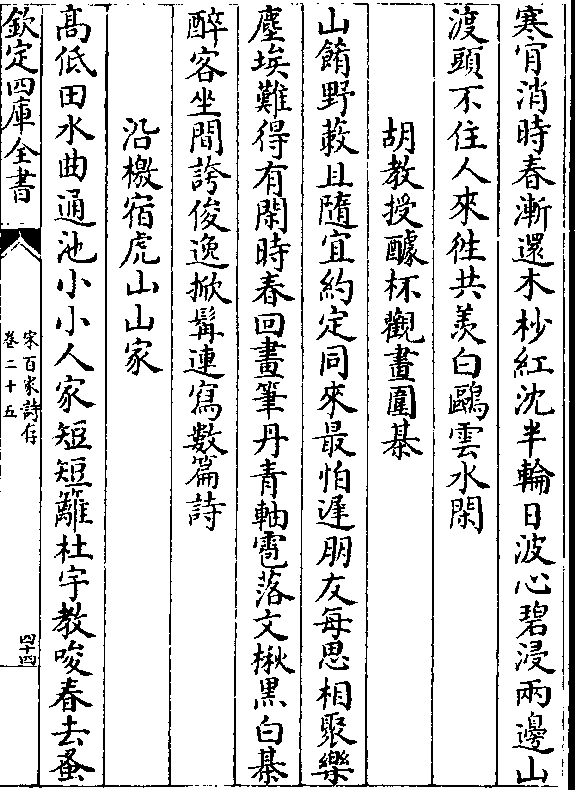 寒宵消時春漸還木杪紅沈半輪日波心碧浸兩邊山
渡頭不住人來徃共羨白鷗雲水閑
胡教授醵杯觀畫圍棊
山餚野蔌且隨宜約定同來最怕遲朋友每思相聚樂
塵埃難得有閑時春回畫筆丹青軸雹落文楸黑白棊
醉客坐間誇俊逸掀髯連寫數篇詩
沿檄宿虎山山家
高低田水曲通池小小人家短短籬杜宇教唆春去蚤
欽定四庫全書
宋百家詩存
卷二十五
四十四